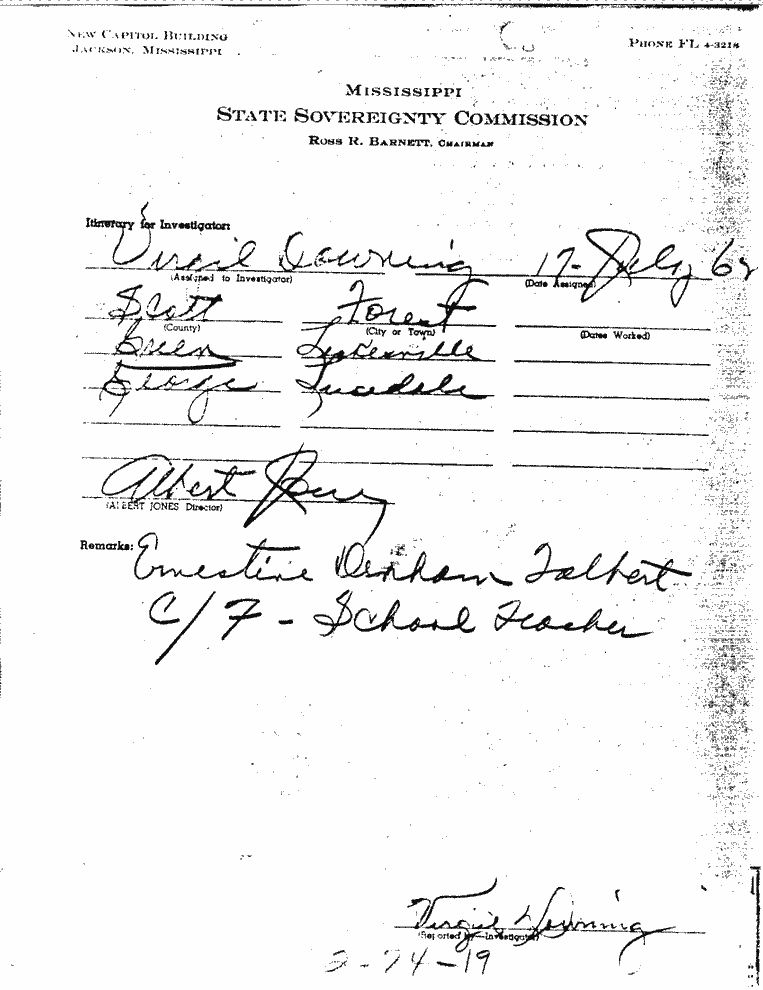 NEW CAPITOL BUILDING
JACKSON, MISSISSIPPI
PHONE FL 4-3218
MISSISSIPPI
STATE SOVEREIGNTY COMMISSION
ROSS R. BARNETT, CHAIRMAN
Itinerary for Investigator:
Virgil Downing 17-July 62
(Assigned to Investigator) (Date Assigned)
Scott Forest
(County) (City or Town) (Dates Worked)
Green Leakesville
George Lucedale
Albert Jones
(ALBERT JONES Director)
Remarks: Ernestine Denham Talbert
C/F - School Teacher
Virgil Downing
(Reported by—Investigator)
2-74-19